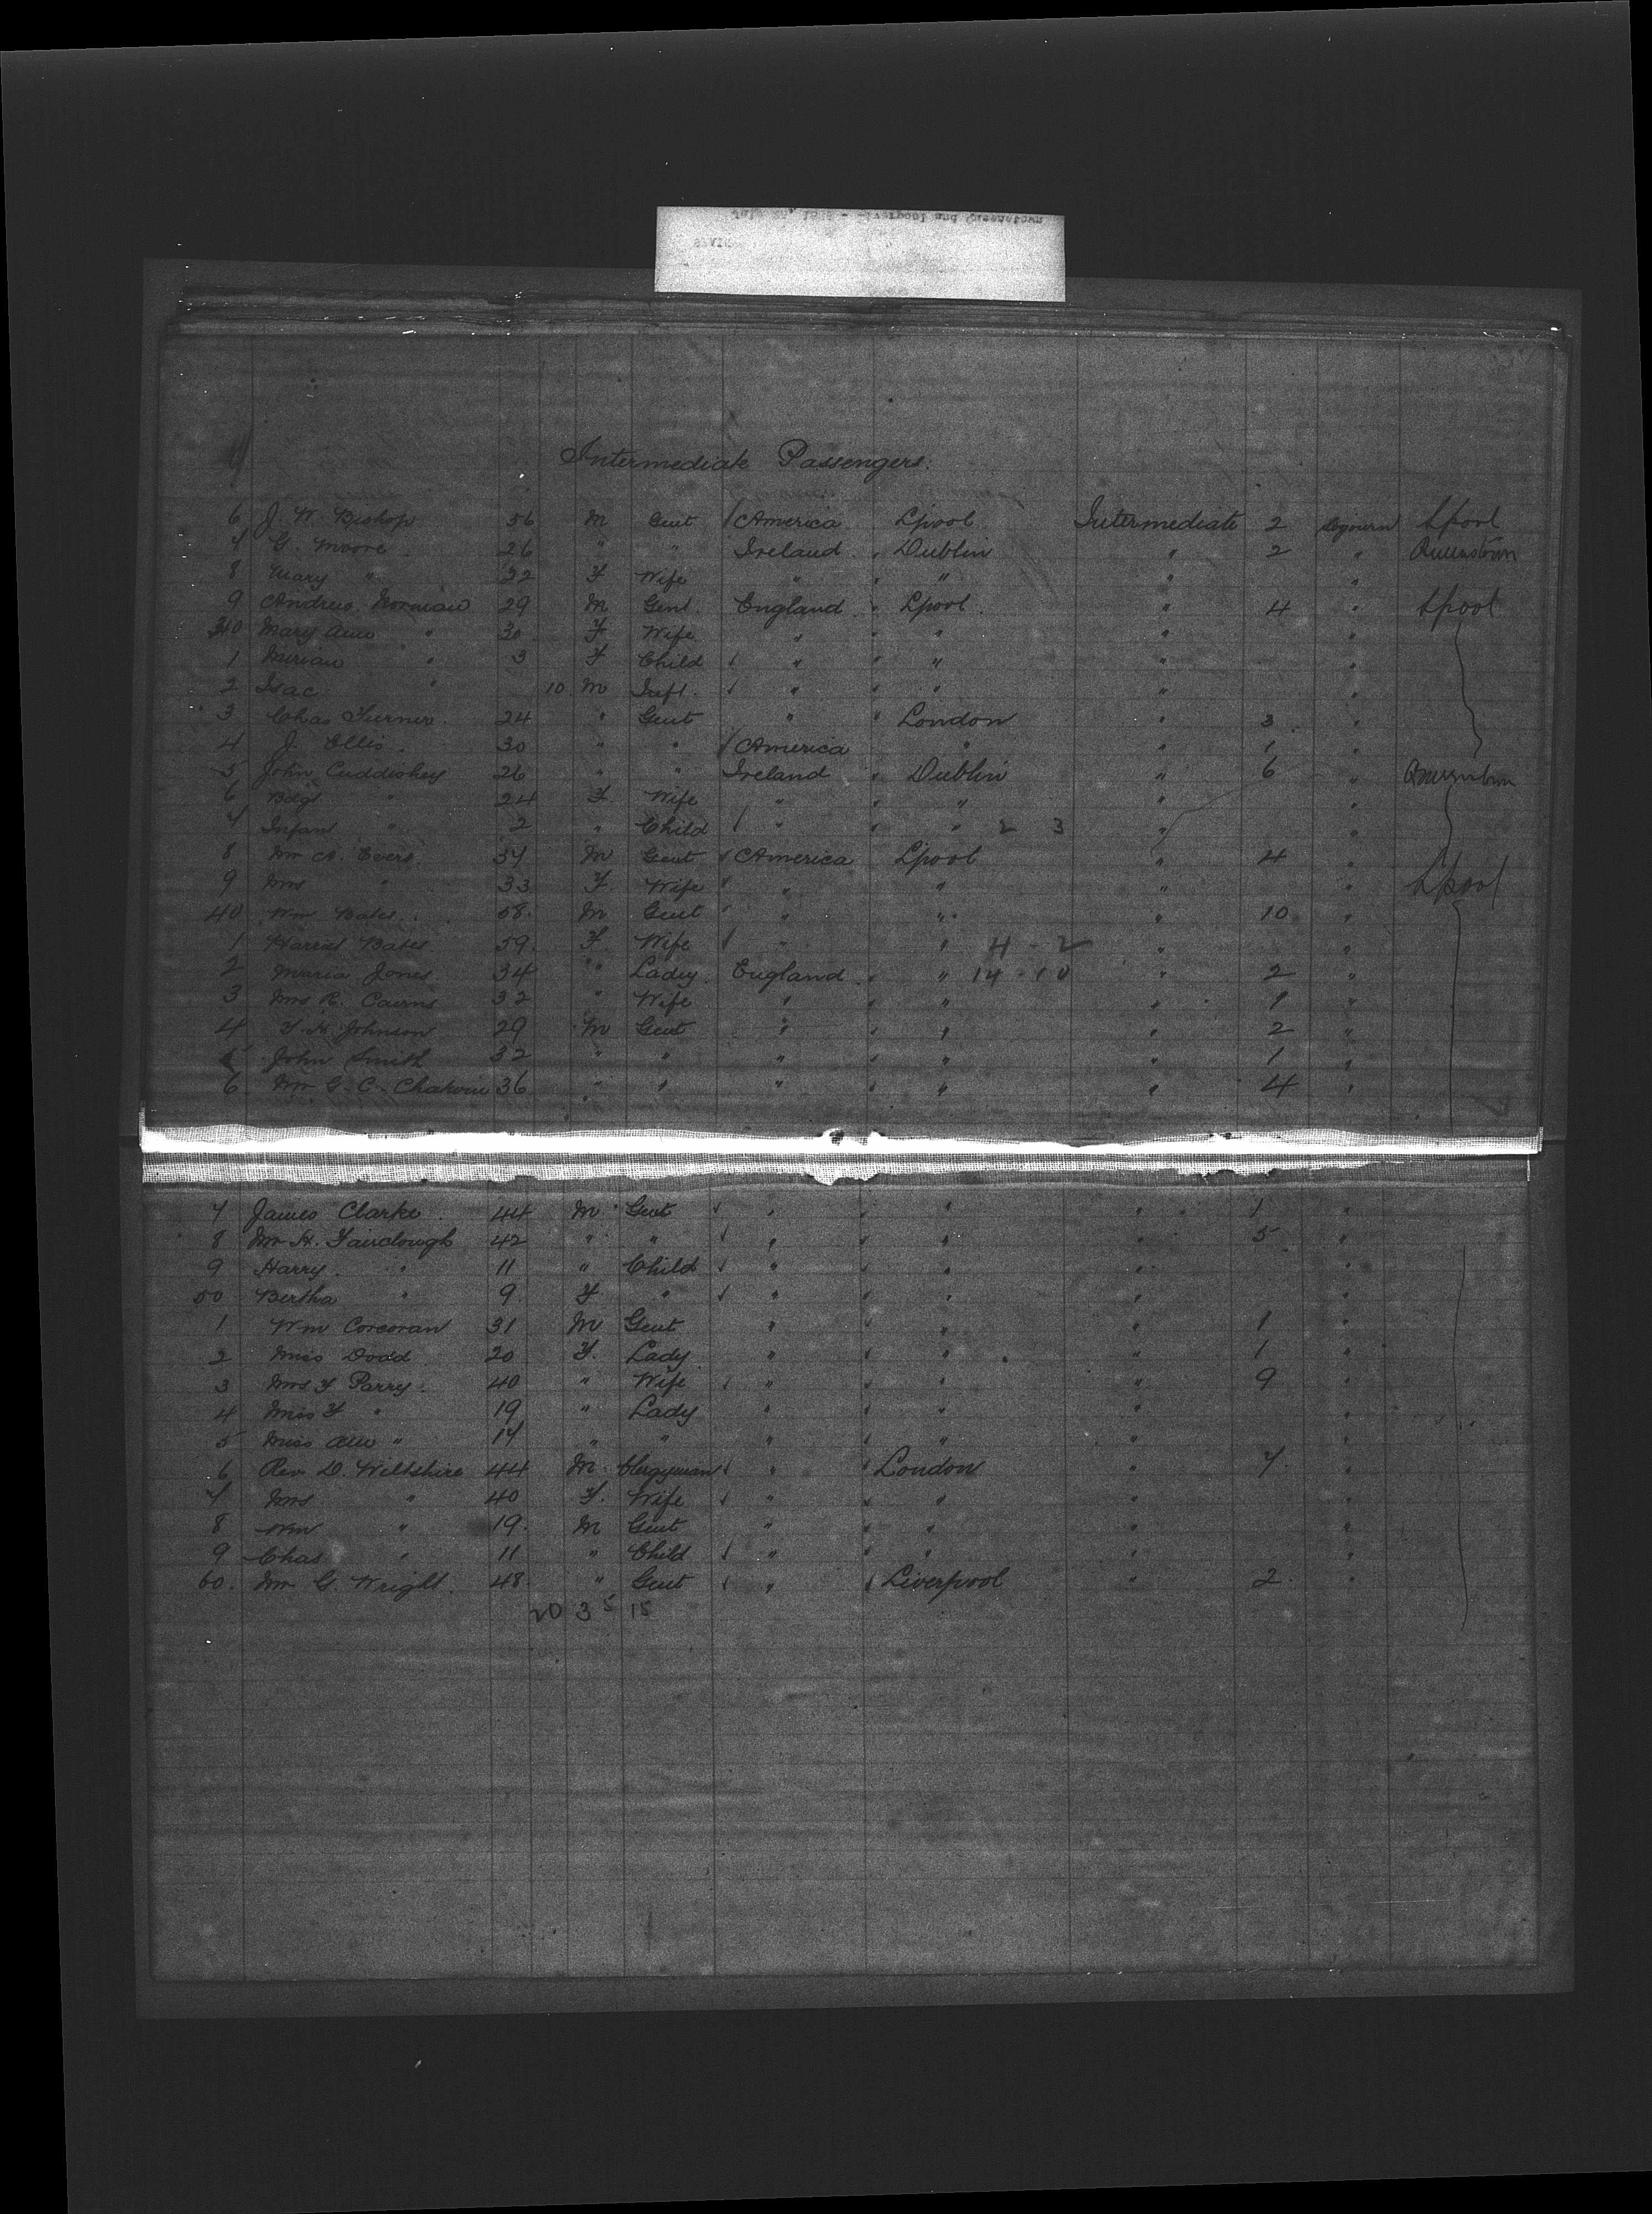 Intermediate Passengers.
6 J. W. Bishop 56 M Gent America Lpool Intermediate 2 Sojourn Lpool
7 G. Moore 26 " " Ireland " Dublin " 2 " Queenstown
8 Mary " 22 F Wife " " " " "
9 Andrew Norman 29 M Gent. England " Lpool " 4 " Lpool
40 Mary Ann " 30 F Wife " " " " "
1 Miriam " 3 F Child " " " " "
2 Isac " 10 M Inft. " " " " "
3 Chas Turner 24 " Gent " " London " 3 "
4 J. Ellis 30 " " America " " 1 "
5 John Cuddishey 26 " " Ireland " Dublin " 6 " Queenstown
6 Bdgt " 24 F Wife " " " " "
7 Infant " 2 " Child " " " 2 3 " "
8 Mr A. Evers 37 M Gent America Lpool " 4 "
9 Mrs " 33 F Wife " " " " Lpool
40 Wm Bates 58 M Gent " " " 10 "
1 Harriet Bates 59 F Wife " " 4 - 2 " "
2 Maria Jones 34 " Lady England " " 14 - 10 " 2 "
3 Mrs R. Cairns 32 " Wife " " " " 1 "
4 F. H. Johnson 29 M Gent " " " " 2 "
5 John Smith 32 " " " " " " 1 "
6 Mr G. C. 36 " " " " " " 4 "
7 James Clarke 44 M Gent " " " " 1 "
8 Mr H. Fairclough 42 " " " " " " 5 "
9 Harry " 11 " Child " " " " "
50 Bertha " 9 F " " " " " "
1 Wm Corcoran 31 M Gent " " " " 1 "
2 Miss Dodd 20 F. Lady " " " " 1 "
3 Mrs F Parry 40 " Wife " " " " 9 "
4 Miss F " 19 " Lady " " " " "
5 Miss Ann " 17 " " " " " " "
6 Rev. D. Wiltshire 44 M Clergyman " " London " 7 "
7 Mrs " 40 F. Wife " " " " "
8 Wm " 19 M Gent " " " " "
9 Chas " 11 " Child " " " " "
60. Mr G. Wright 48 " Gent " " Liverpool " 2 "
20 3 5 15